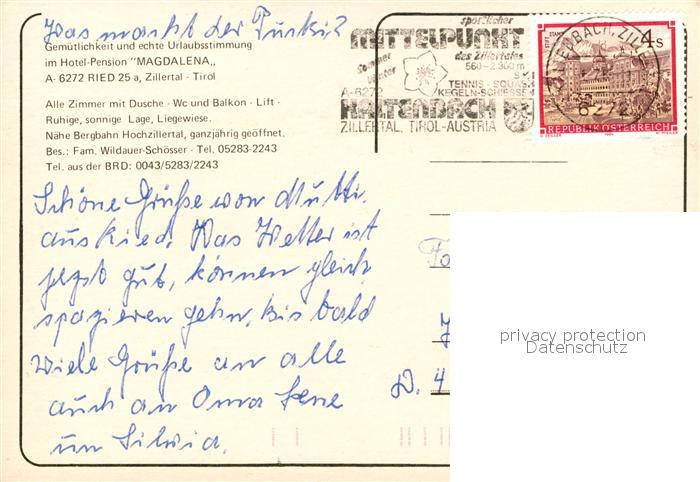 Was macht der Purki?
Gemütlichkeit und echte Urlaubsstimmung
im Hotel-Pension "MAGDALENA„
A- 6272 RIED 25 a, Zillertal - Tirol
Alle Zimmer mit Dusche - Wc und Balkon - Lift -
Ruhige, sonnige Lage, Liegewiese.
Nähe Bergbahn Hochzillertal, ganzjährig geöffnet.
Bes.: Fam. Wildauer-Schösser - Tel. 05283-2243
Tel. aus der BRD: 0043/5283/2243
sportlicher
MITTELPUNKT
des Zillertales
Sommer
Winter
560-2.360 m
SKI
TENNIS-SQUASH
KEGELN-SCHIESSEN
A-6272
KALTENBACH
ZILLERTAL, TIROL-AUSTRIA
4 S
STIFT STAMS
KALTENBACH, ZILLERTAL
REPUBLIK ÖSTERREICH
1984
Schöne Grüße von Mutti.
aus Ried. Das Wetter ist
jetzt gut, können gleich
spazieren gehn, bis bald
viele Grüße an alle
auch an Oma Lene
un Silvia.
D. 4
privacy protection
Datenschutz